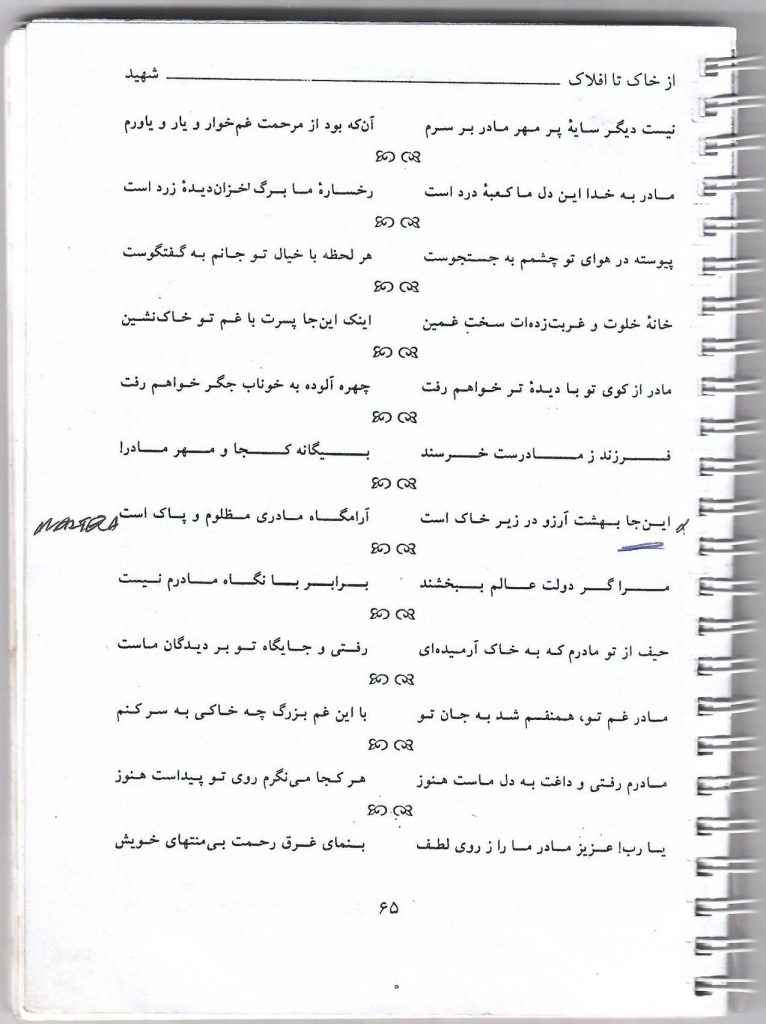 از خاک تا افلاک شهید
نیست دیگر سایهٔ پر مهر مادر بر سرم آن‌که بود از مرحمت غم‌خوار و یار و یاورم
مادر به خدا این دل ما کعبهٔ درد است رخسارهٔ ما برگ خزان‌دیدهٔ زرد است
پیوسته در هوای تو چشمم به جستجوست هر لحظه با خیال تو جانم به گفتگوست
خانهٔ خلوت و غربت‌زده‌ات سخت غمین اینک این‌جا پسرت با غم تو خاک‌نشین
مادر از کوی تو با دیدهٔ تر خواهم رفت چهره آلوده به خوناب جگر خواهم رفت
فرزند ز مادرست خرسند بیگانه کجا و مهر مادر!
این‌جا بهشت آرزو در زیر خاک است آرامگاه مادری مظلوم و پاک است
مرا گر دولت عالم ببخشند برابر با نگاه مادرم نیست
حیف از تو مادرم که به خاک آرمیده‌ای رفتی و جایگاه تو بر دیدگان ماست
مادر غم تو، همنفسم شد به جان تو با این غم بزرگ چه خاکی به سر کنم
مادرم رفتی و داغت به دل ماست هنوز هر کجا می‌نگرم روی تو پیداست هنوز
یا رب! عزیز مادر ما را ز روی لطف بنمای غرق رحمت بی‌منتهای خویش
۶۵